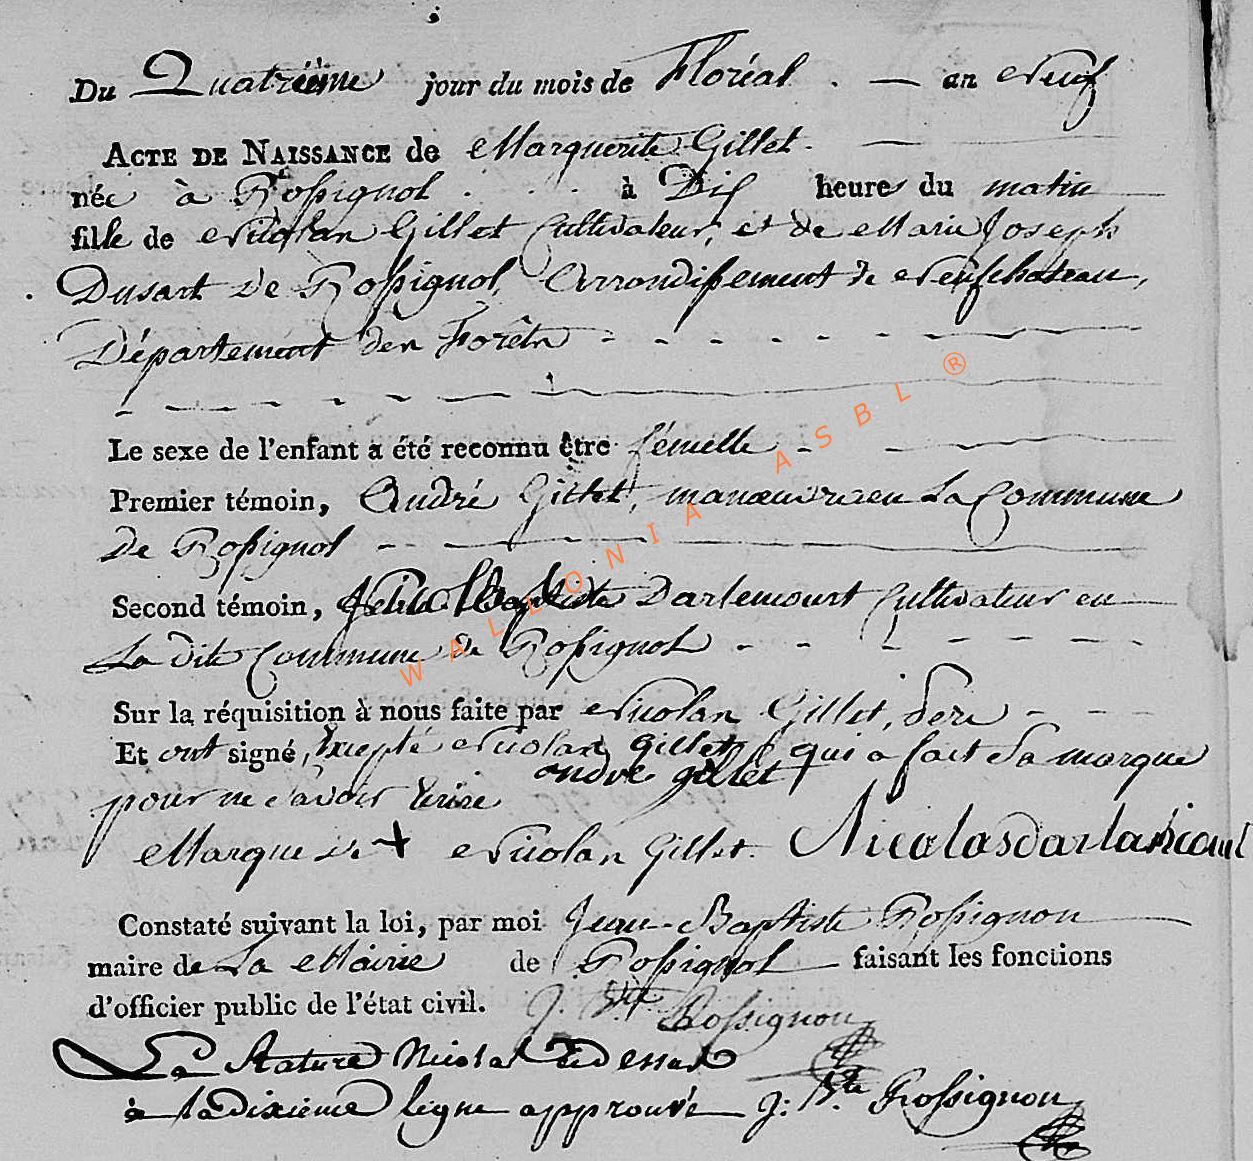 Du Quatrième jour du mois de Floréal . — an Neuf
ACTE DE NAISSANCE de Marguerite Gillet. —
née à Rossignol . . . à Dix heures du matin
fille de Nicolas Gillet Cultivateur, et de Marie Joseph
Dusart de Rossignol, Arrondissement de Neufchateau,
Département des Forêts - - - - -
Le sexe de l'enfant a été reconnu être fémelle - -
Premier témoin, André Gillet, manœuvre en La Commune
de Rossignol - —
Second témoin, Baptiste Darlencourt Cultivateur en
La dite Commune de Rossignol - - - - -
Sur la réquisition à nous faite par Nicolas Gillet, père - - -
Et ont signé, Excepté Nicolas Gillet qui a fait Sa marque
pour ne Savoir Ecrire andre gillet
Marque de + Nicolas Gillet. Nicolas
Constaté suivant la loi, par moi Jean-Baptiste Rossignon
maire de La Mairie de Rossignol faisant les fonctions
d'officier public de l'état civil. J. Bte Rossignon
La Nicolas
à la dixieme ligne approuvé J: Bte Rossignon
WALLONIA ASBL ®